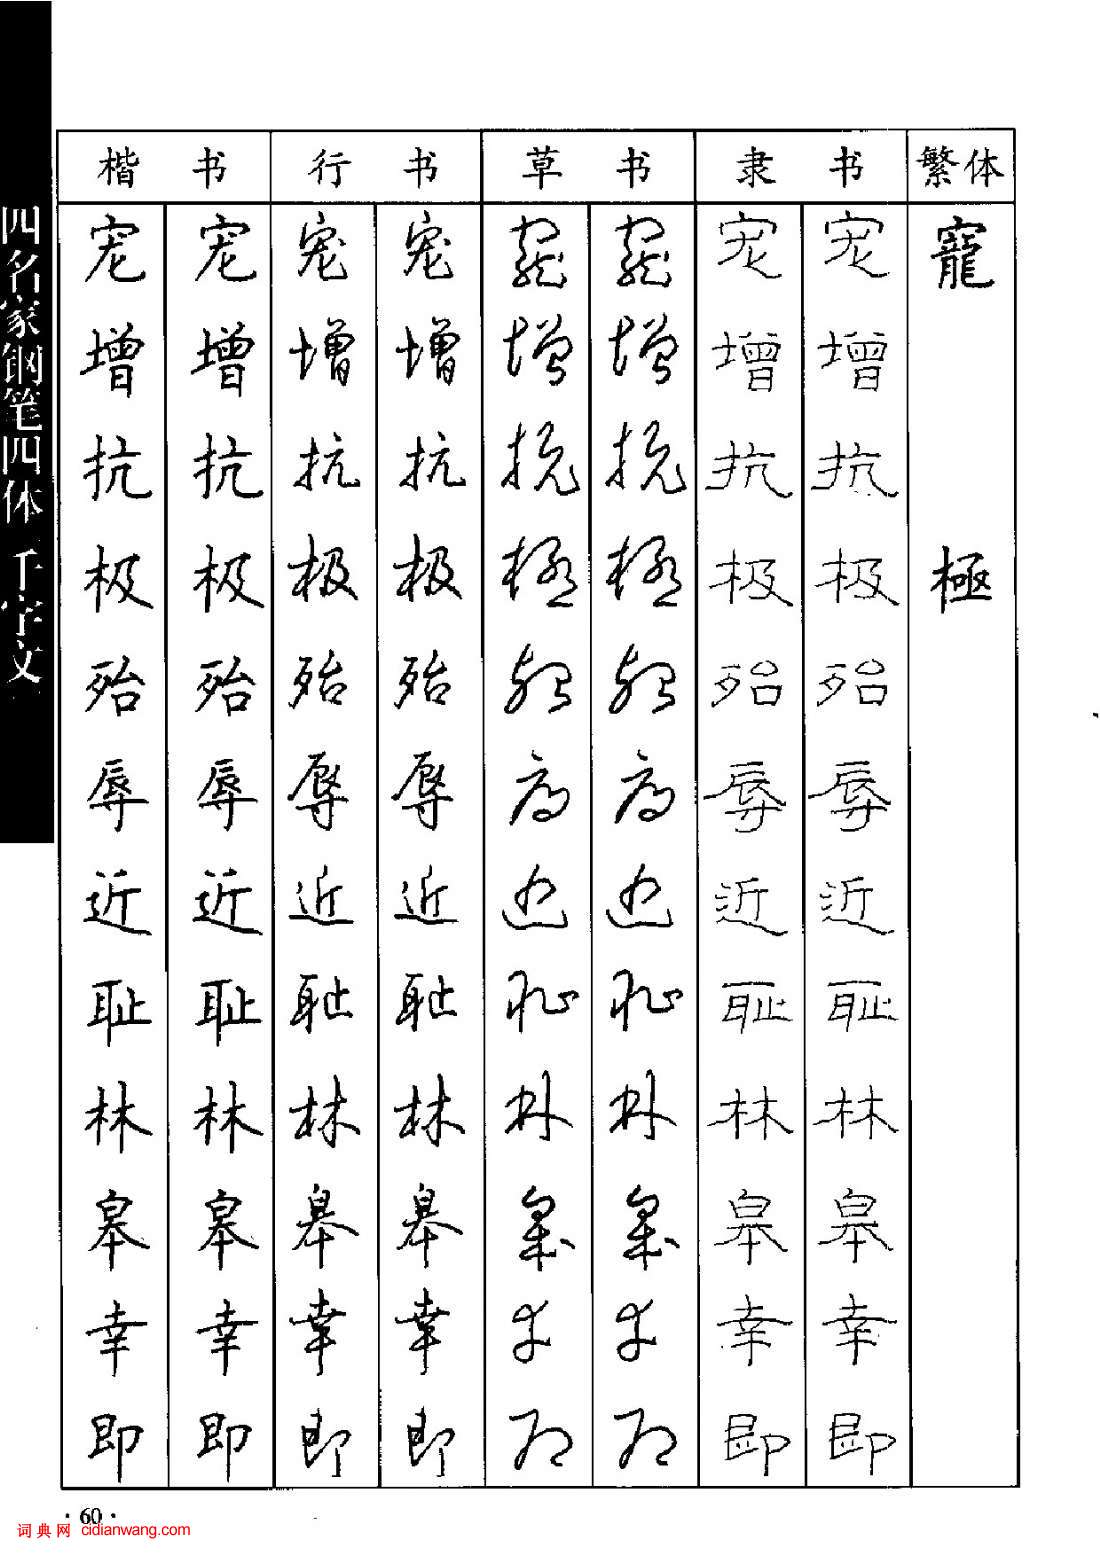 四名家钢笔四体 千字文
楷书 行书 草书 隶书 繁体
宠 宠 宠 宠 宠 宠 宠 宠 寵
增 增 增 增 增 增 增 增
抗 抗 抗 抗 抗 抗 抗 抗
极 极 极 极 極 極 极 极 極
殆 殆 殆 殆 殆 殆 殆 殆
辱 辱 辱 辱 辱 辱 辱 辱
近 近 近 近 近 近 近 近
耻 耻 耻 耻 耻 耻 耻 耻
林 林 林 林 林 林 林 林
皋 皋 皋 皋 皋 皋 皋 皋
幸 幸 幸 幸 幸 幸 幸 幸
即 即 即 即 即 即 即 即
·60·
词典网 cidianwang.com